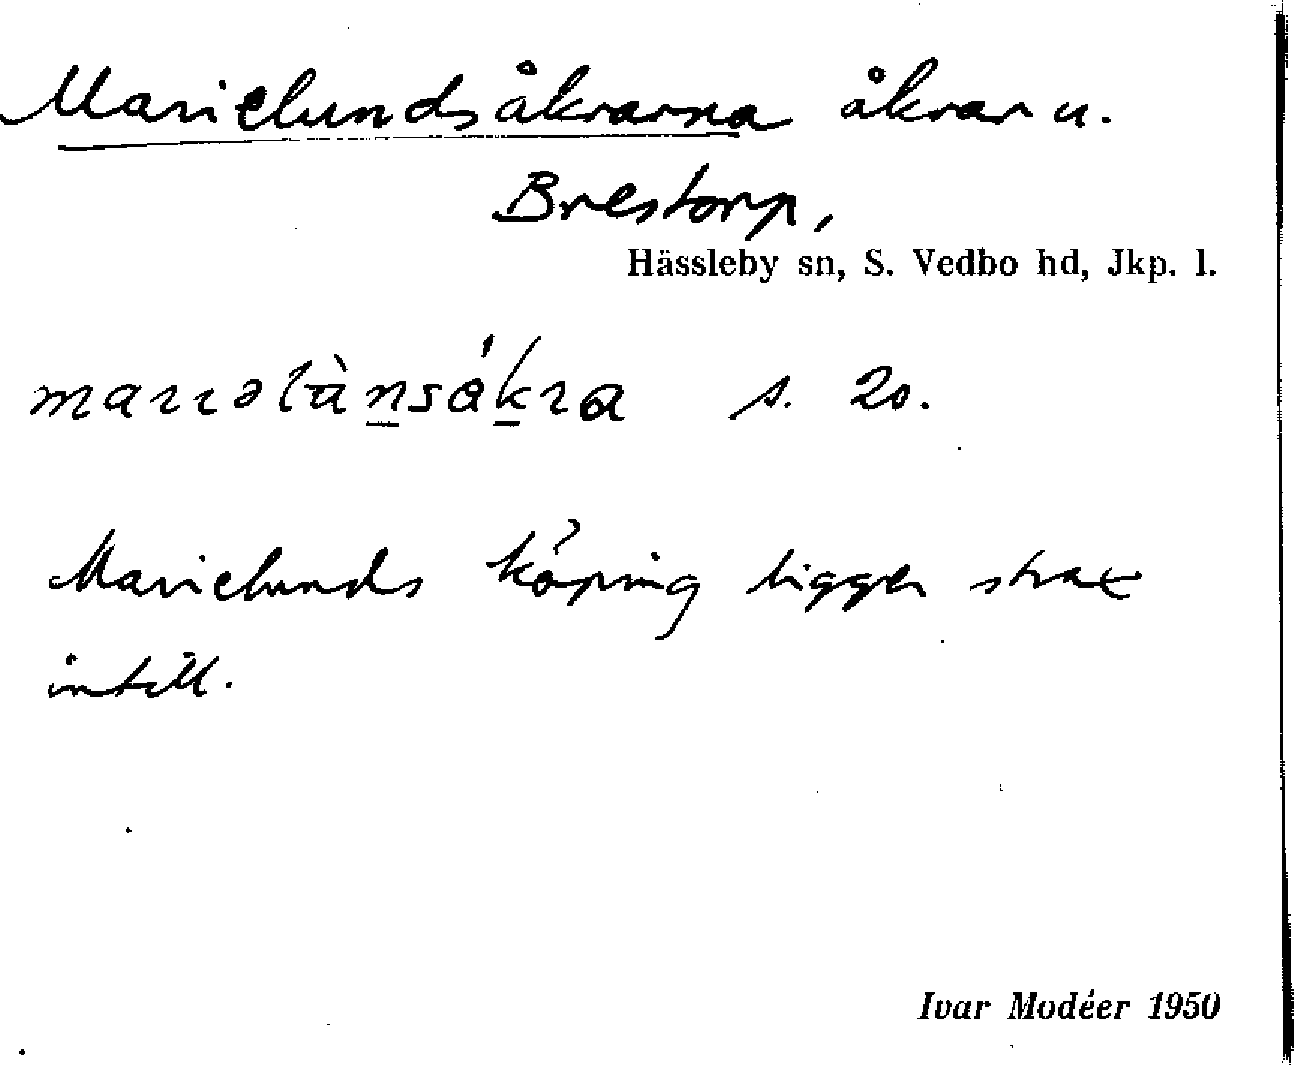 Marielundsåkrarna åkrar u.
Brestorp,
Hässleby sn, S. Vedbo hd, Jkp. l.
s. 20.
Marielunds köping ligger strax
intill.
Ivar Modéer 1950